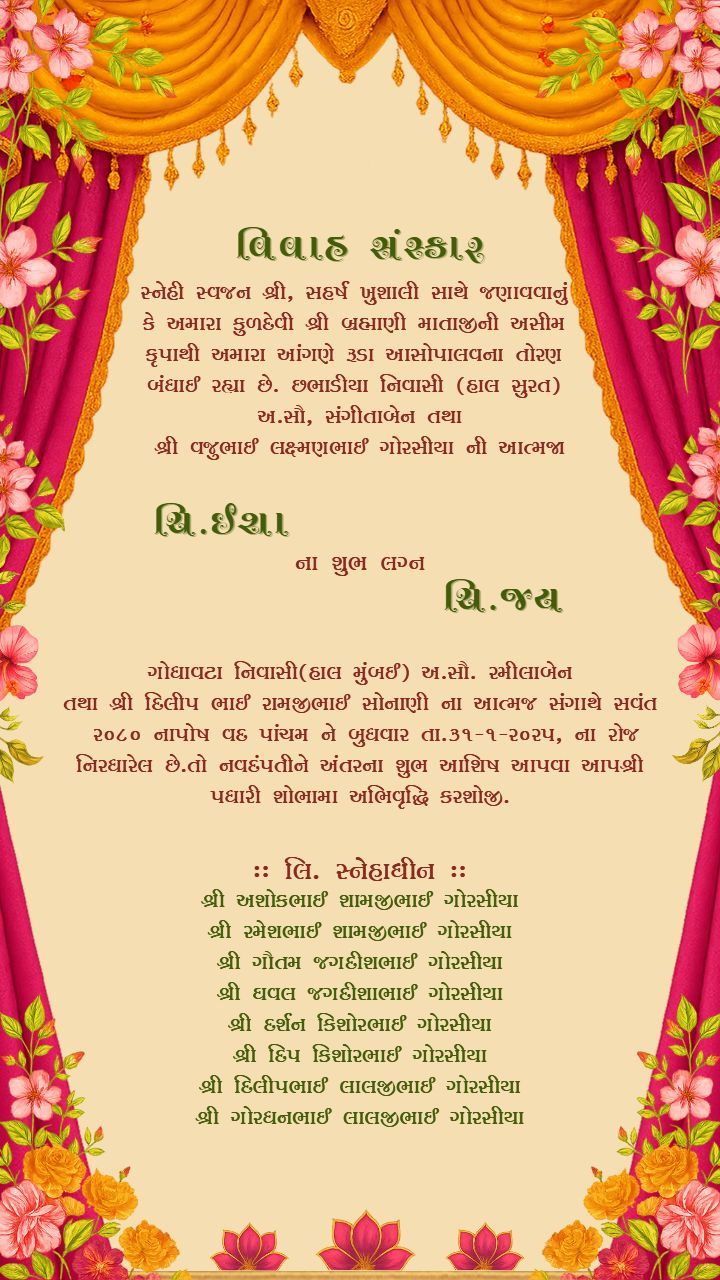 વિવાહ સંસ્કાર
સ્નેહી સ્વજન શ્રી, સહર્ષ ખુશાલી સાથે જણાવવાનું
કે અમારા કુળદેવી શ્રી બ્રહ્માણી માતાજીની અસીમ
કૃપાથી અમારા આંગણે રૂડા આસોપાલવના તોરણ
બંધાઈ રહ્યા છે. છભાડીયા નિવાસી (હાલ સુરત)
અ.સૌ, સંગીતાબેન તથા
શ્રી વજુભાઈ લક્ષ્મણભાઈ ગોરસીયા ની આત્મજા
ચિ.ઈશા
ના શુભ લગ્ન
ચિ.જય
ગોધાવટા નિવાસી(હાલ મુંબઈ) અ.સૌ. રમીલાબેન
તથા શ્રી દિલીપ ભાઈ રામજીભાઈ સોનાણી ના આત્મજ સંગાથે સવંત
૨૦૮૦ નાપોષ વદ પાંચમ ને બુધવાર તા.૩૧-૧-૨૦૨૫, ના રોજ
નિરધારેલ છે.તો નવદંપતીને અંતરના શુભ આશિષ આપવા આપશ્રી
પધારી શોભામા અભિવૃદ્ધિ કરશોજી.
:: લિ. સ્નેહાધીન ::
શ્રી અશોકભાઈ શામજીભાઈ ગોરસીયા
શ્રી રમેશભાઈ શામજીભાઈ ગોરસીયા
શ્રી ગૌતમ જગદીશભાઈ ગોરસીયા
શ્રી ઘવલ જગદીશાભાઈ ગોરસીયા
શ્રી દર્શન કિશોરભાઈ ગોરસીયા
શ્રી દિપ કિશોરભાઈ ગોરસીયા
શ્રી દિલીપભાઈ લાલજીભાઈ ગોરસીયા
શ્રી ગોરધનભાઈ લાલજીભાઈ ગોરસીયા